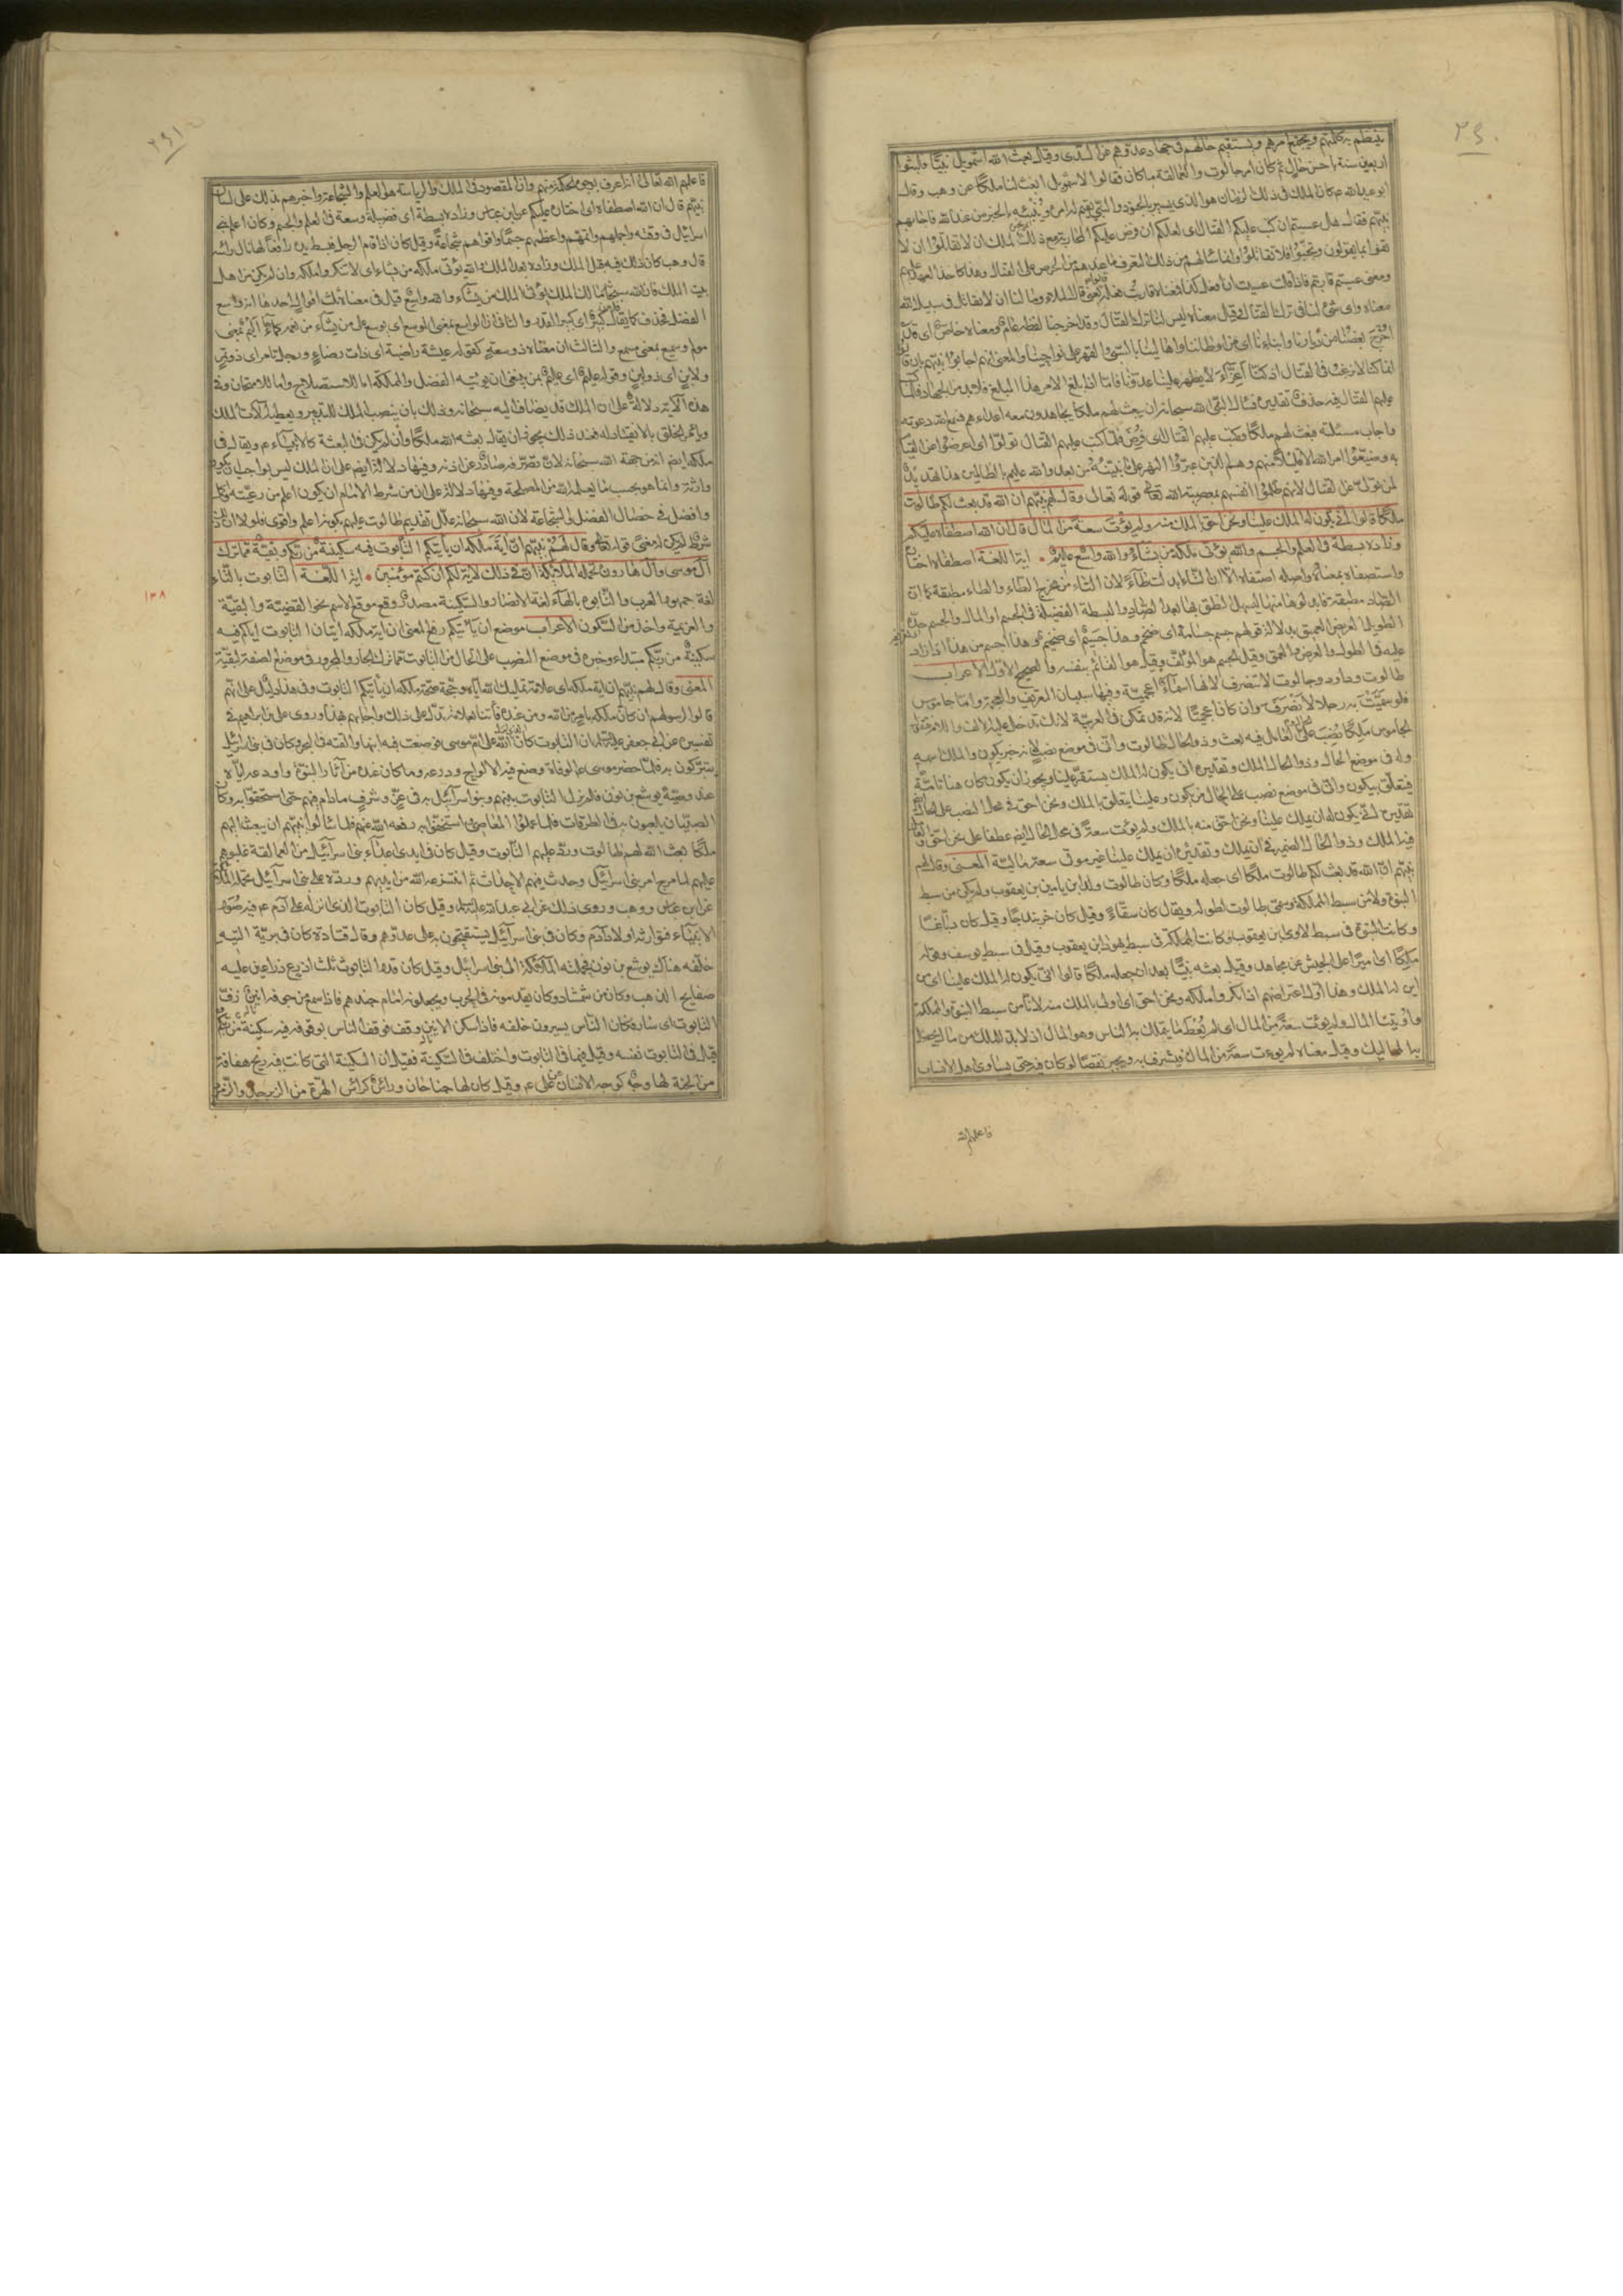 ٢٩٠
ينتظم به كلمتهم ويجتمع امرهم ويستقيم حالهم في جهاد عدوهم عن السدي وقيل بعث الله اشمويل نبيا فلبثوا
اربعين سنة باحسن حال ثم كان من امر جالوت والعمالقة ما كان فقالوا لاشمويل ابعث لنا ملكا عن وهب وقال
ابو عبد الله ع كان الملك في ذلك الزمان هو الذي يسير بالجنود والنبي يقيم له امره وينبئه بالخبر من عند الله فاجابهم
نبيهم فقال هل عسيتم ان كتب عليكم القتال اى لعلكم ان فرض عليكم المحاربة مع ذلك الملك ان لا تقاتلوا ان لا
تفوا بما تقولون وتجبنوا فلا تقاتلوا وانما سألهم عن ذلك ليعرف ما عندهم من الحرص على القتال وهذا كاخذ العهد عليهم
ومعنى عسيتم قاربتم فاذا قلت عسيت ان افعل كذا فمعناه قاربت فعله قالوا يعنى قال الملاء وما لنا ان لا نقاتل في سبيل الله
معناه واى شئ لنا في ترك القتال وقيل معناه ليس لنا ترك القتال وقد اخرجنا لفظه عام ومعناه خاص اى قد
اخرج بعضنا من ديارنا وابناءنا اى من اوطاننا واهالينا بالسبي والقهر على نواحينا والمعنى انهم اجابوا نبيهم بان قالوا
انما كنا لا نرغب في القتال اذ كنا اعزاء لا يظهر علينا عدونا فاما اذا بلغ الامر هذا المبلغ فلا بد من الجهاد فلما كتب
عليهم القتال فيه حذف تقديره فسأل النبي الله سبحانه ان يبعث لهم ملكا يجاهدون معه اعداءهم فسمع الله دعوته
واجاب مسئلته فبعث لهم ملكا وكتب عليهم القتال اى فرض فلما كتب عليهم القتال تولوا اى اعرضوا عن القيام
به وضيعوا امر الله الا قليلا منهم وهم الذين عبروا النهر على ما نبينه من بعد والله عليم بالظالمين هذا تهديد
لمن يتولى عن القتال لانهم ظلموا انفسهم بمعصية الله تعالى قوله تعالى وقال لهم نبيهم ان الله قد بعث لكم طالوت
ملكا قالوا انى يكون له الملك علينا ونحن احق بالملك منه ولم يؤت سعة من المال قال ان الله اصطفاه عليكم
وزاده بسطة في العلم والجسم والله يؤتى ملكه من يشاء والله واسع عليم اية اللغة اصطفاه اختاره
واستصفاه بمعناه واصله اصتفاه الا ان التاء ابدلت طاء لان التاء من مخرج الطاء والطاء مطبقة كما ان
الصاد مطبقة فابدلوها منها ليسهل النطق بها بعد الصاد والبسطة الفضيلة في الجسم او المال والجسم حده
الطويل العريض العميق بدلالة قولهم جسم جسامة اى ضخم وهذا جسيم اى ضخيم وهذا اجسم من هذا اذا زاد
عليه في الطول والعرض والعمق وقيل الجسم هو المؤلف وقيل هو القائم بنفسه والصحيح الاول الاعراب
طالوت وداود وجالوت لا تنصرف لانها اسماء اعجمية وفيها سببان التعريف والعجمة واما جاموس
فلو سميت به رجلا لانصرف وان كان اعجميا لانه قد تمكن في العربية لانك تدخل عليه الالف واللام فتقول
الجاموس ملكا نصب على الحال والعامل فيه بعث وذو الحال طالوت وانى في موضع نصب لانه خبر يكون والملك اسمه
وله في موضع الحال وذو الحال الملك وتقديره انى يكون الملك يستقر علينا ويجوز ان يكون كان هنا تامة
فيتعلق بيكون وانى في موضع نصب على الحال من يكون وعلينا يتعلق بالملك ونحن احق في محل النصب على الحال
تقديره انى يكون له ان يملك علينا ونحن احق منه بالملك ولم يؤت سعة في محل الحال ايضا عطفا على نحن احق والعامل
فيه الملك وذو الحال الضمير في ان يملك وتقديره ان يملك علينا غير موتى سعة مالية المعنى وقال لهم
نبيهم ان الله قد بعث لكم طالوت ملكا اى جعله ملكا وكان طالوت من ولد ابن يامين بن يعقوب ولم يكن من سبط
النبوة ولا من سبط المملكة وسمى طالوت لطوله ويقال كان سقاء وقيل كان خربندجا وقيل كان دباغا
وكانت النبوة في سبط لاوى بن يعقوب وكانت المملكة في سبط يهوذا بن يعقوب وقيل في سبط يوسف وقوله
ملكا اى اميرا على الجيش عن مجاهد وقيل بعثه نبيا بعد ان جعله ملكا قالوا انى يكون له الملك علينا اى من
اين له الملك وهذا اول اعتراضهم اذ انكروا ملكه ونحن احق اى اولى بالملك منه لانا من سبط النبوة والمملكة
واوتينا المال ولم يؤت سعة من المال اى لم يعط ما يتملك به الناس وهو المال اذ لا بد للملك من مال يحصل
به المماليك وقيل معناه لم يوءت سعة من المال فيشرف به ويجبر نقصا لو كان فيه حتى يساوى اهل الانساب
فاعلمهم الله
٢٩١
فاعلمهم الله تعالى انه اعرف بوجوه الحكمة منهم وان المقصود في الملك والرياسة هو العلم والشجاعة واخبرهم بذلك على لسان
نبيهم قال ان الله اصطفاه اى اختاره عليكم عن ابن عباس وزاده بسطة اى فضيلة وسعة في العلم والجسم وكان اعلم بنى
اسرائيل في وقته واجملهم واتمهم واعظمهم جسما واقواهم شجاعة وقيل كان اذا قام الرجل فبسط يده رافعا لها نال رأسه
قال وهب كان ذلك فيه قبل الملك وزاده بعد الملك والله يؤتى ملكه من يشاء اى لا تنكروا ملكه وان لم يكن من اهل
بيت الملك فان الله سبحانه مالك الملك يؤتى الملك من يشاء والله واسع قيل في معناه ثلاثة اقوال احدها انه واسع
الفضل فحذف كما يقال فلان كبير اى كبير القدر والثاني ان الواسع بمعنى الموسع اى يوسع على من يشاء من نعمه كما جاء اليم بمعنى
مولم وسميع بمعنى مسمع والثالث ان معناه ذو سعة كقوله عيشة راضية اى ذات رضاء ورجل تامر اى ذو تمر
ولابن اى ذو لبن وقوله عليم اى عليم بمن ينبغى ان يؤتيه الفضل والمملكة اما للاستصلاح واما للامتحان وفى
هذه الاية دلالة على ان الملك قد يضاف اليه سبحانه وذلك بان ينصب الملك للتدبير ويعطيه آلات الملك
ويأمر الخلق بالانقياد له فعند ذلك يجوز ان يقال بعثه الله ملكا وان لم يكن في البعثة كالانبياء ع ويقال في
ملكه ايضا انه من جهة الله سبحانه لان تصرفه صادر عن اذنه وفيها دلالة ايضا على ان الملك ليس بواجب ان يكون
وراثة وانما هو بحسب ما يعلمه الله من المصلحة وفيها دلالة على ان من شرط الامام ان يكون اعلم من رعيته واكمل
وافضل في خصال الفضل والشجاعة لان الله سبحانه علل تقديم طالوت عليهم بكونه اعلم واقوى فلولا ان ذلك
شرط لم يكن له معنى قوله تعالى وقال لهم نبيهم ان آية ملكه ان يأتيكم التابوت فيه سكينة من ربكم وبقية مما ترك
آل موسى وآل هارون تحمله الملائكة ان في ذلك لآية لكم ان كنتم مؤمنين اية اللغة التابوت بالتاء
١٣٨
لغة جمهور العرب والتابوه بالهاء لغة الانصار والسكينة مصدر وقع موقع الاسم نحو القضية والبقية
والعزيمة واخذ من السكون الاعراب موضع ان يأتيكم رفع المعنى ان اية ملكه اتيان التابوت اياكم فيه
سكينة من ربكم مبتداء وخبره في موضع النصب على الحال من التابوت مما ترك الجار والمجرور في موضع الصفة لبقية
المعنى وقال لهم نبيهم ان اية ملكه اى علامة تمليك الله اياه وحجة صحة ملكه ان يأتيكم التابوت وفى هذا دليل على انهم
قالوا لرسولهم ان كان ملكه بامر من الله ومن عنده فأتنا بعلامة تدل على ذلك واجابهم بهذا وروى على بن ابراهيم في
تفسيره عن ابى جعفر عليه السلام ان التابوت كان الذى انزل الله على ام موسى فوضعت فيه ابنها والقته في البحر وكان في بنى اسرائيل
يتبركون به فلما حضر موسى ع الوفاة وضع فيه الالواح ودرعه وما كان عنده من آثار النبوة واودعه
عند وصيه يوشع بن نون فلم يزل التابوت بينهم وبنو اسرائيل به في عز وشرف مادام فيهم حتى استخفوا به وكان
الصبيان يلعبون به في الطرقات فلما عملوا المعاصى واستخفوا به رفعه الله عنهم فلما سألوا نبيهم ان يبعث اليهم
ملكا بعث الله لهم طالوت ورد عليهم التابوت وقيل كان في ايدى اعداء بنى اسرائيل من العمالقة غلبوهم
عليه لما مرج امر بنى اسرائيل وحدث فيهم الاحداث ثم انتزعه الله من ايديهم ورده على بنى اسرائيل تحمله الملائكة
عن ابن عباس ووهب وروى ذلك عن ابى عبد الله عليه السلام وقيل كان التابوت الذى انزله على آدم ع فيه صور
الانبياء فتوارثه اولاد آدم وكان في بنى اسرائيل يستفتحون به على عدوهم وقال قتادة كان في برية التيه
خلفه هناك يوشع بن نون فحملته الملائكة الى بنى اسرائيل وقيل كان قدر التابوت ثلث اذرع في ذراعين عليه
صفايح الذهب وكان من شمشاد وكان يقدمونه في الحرب ويجعلونه امام جندهم فاذا سمع من جوفه انين زف
التابوت اى سار فكان الناس يسيرون خلفه فاذا سكن الانين وقف فوقف الناس بوقوفه فيه سكينة من ربكم
قيل في التابوت نفسه وقيل فيما في التابوت واختلف في السكينة فقيل ان السكينة التى كانت فيه ريح هفافة
من الجنة لها وجه كوجه الانسان عن على ع وقيل كان لها جناحان وراس كراس الهرة من الزبرجد والزمرد